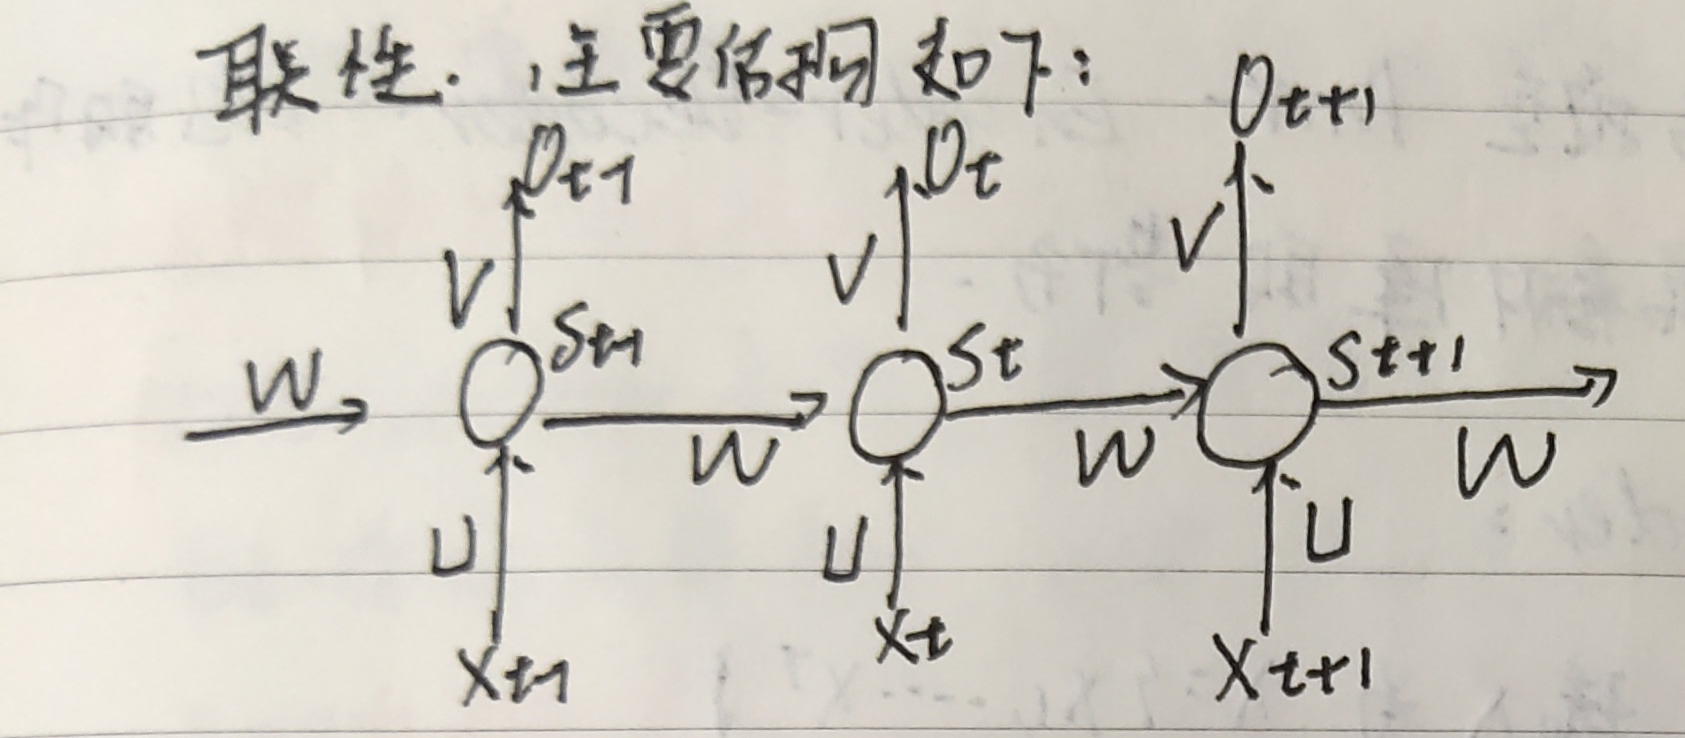 联性. 主要结构如下:
O_{t-1} O_t O_{t+1}
V V V
W S_{t-1} S_t S_{t+1}
W W W
U U U
X_{t-1} X_t X_{t+1}